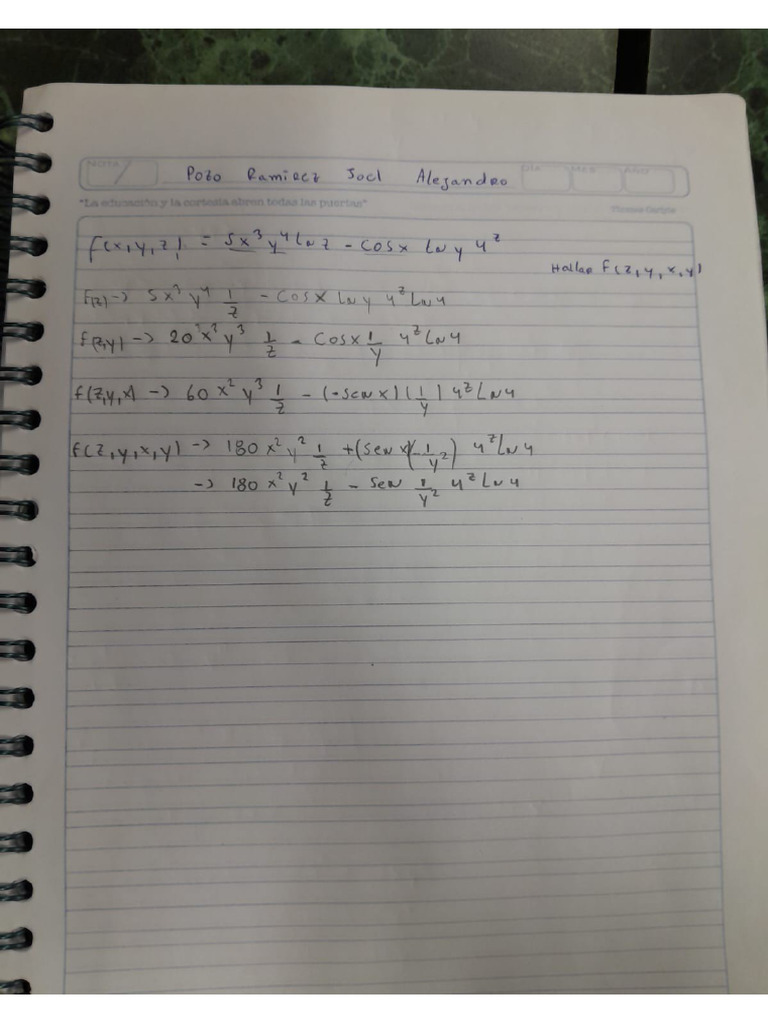 NOTA
Pozo Ramirez Joel Alejandro
Día Mes Año
"La educación y la cortesía abren todas las puertas"
Thomas Carlyle
f(x,y,z) = 5x³y⁴ Ln z - Cosx Ln y 4ᶻ
Hallar f(z,y,x,y)
f(z) -> 5x³ y⁴ 1/z - Cosx Ln y 4ᶻ Ln 4
f(z,y) -> 20 x³ y³ 1/z - Cosx 1/y 4ᶻ Ln 4
f(z,y,x) -> 60 x² y³ 1/z - (-sen x) (1/y) 4ᶻ Ln 4
f(z,y,x,y) -> 180 x² y² 1/z + (sen x)(-1/y²) 4ᶻ Ln 4
-> 180 x² y² 1/z - Sen 1/y² 4ᶻ Ln 4